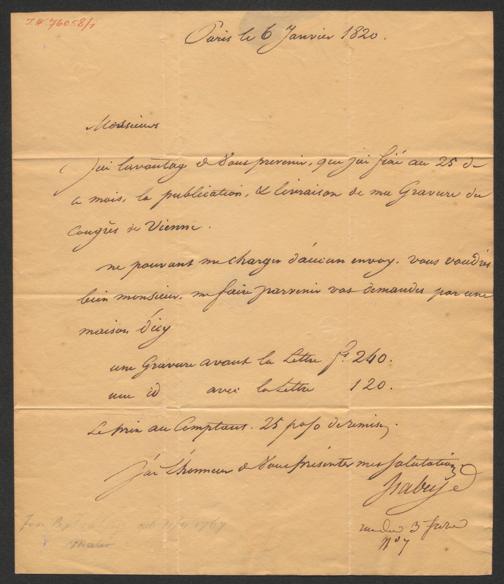 I.N. 76058/1
Paris le 6 Janvier 1820.
Monsieur
J'ai lavantag de Vous prevenir, que j'ai fixé au 25 de
ce mois, la publication, & livraison de ma Gravure du
Congrès de Vienne.
ne pouvant me charger d'aucun envoy. vous voudrès
bien monsieur, me faire parvenir vos demandes par une
maison d'icy
une Gravure avant la Lettre fs. 240.
une id avec la Lettre 120.
Le prix au Comptant. 25 p% de remise,
J'ai L'honneur de Vous présenter mes Salutations
Isabey
rue des 3 frères
No 7